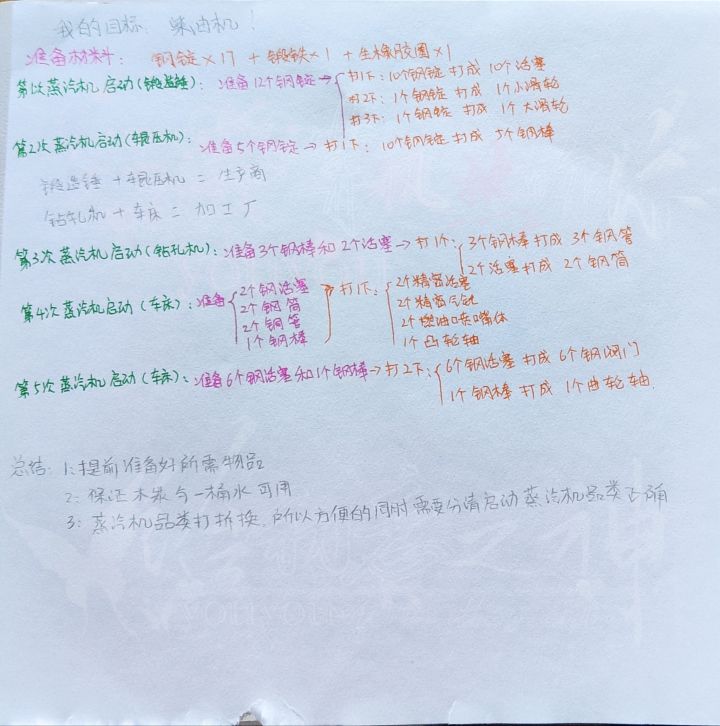 我的目标：柴油机！
准备材料：钢锭×17 + 锻铁×1 + 生橡胶圈×1
第1次蒸汽机启动(锻造锤)：准备12个钢锭→打1下：10个钢锭打成10个活塞
打2下：1个钢锭打成1个小滑轮
打3下：1个钢锭打成1个大滑轮
第2次蒸汽机启动(辊压机)：准备5个钢锭→打1下：10个钢锭打成5个钢棒
锻造锤+辊压机=生产商
钻孔机+车床=加工厂
第3次蒸汽机启动(钻孔机)：准备3个钢棒和2个活塞→打1个：3个钢棒打成3个钢管
2个活塞打成2个钢筒
第4次蒸汽机启动(车床)：准备 2个钢活塞 打1下：2个精密活塞
2个钢筒 2个精密气缸
2个钢管 2个燃油喷嘴体
1个钢棒 1个凸轮轴
第5次蒸汽机启动(车床)：准备6个钢活塞和1个钢棒→打2下：6个钢活塞打成6个钢阀门
1个钢棒打成1个曲轮轴
总结：1：提前准备好所需物品
2：保证木炭与一桶水可用
3：蒸汽机品类打拆换，所以方便的同时需要分清启动蒸汽机品类正确